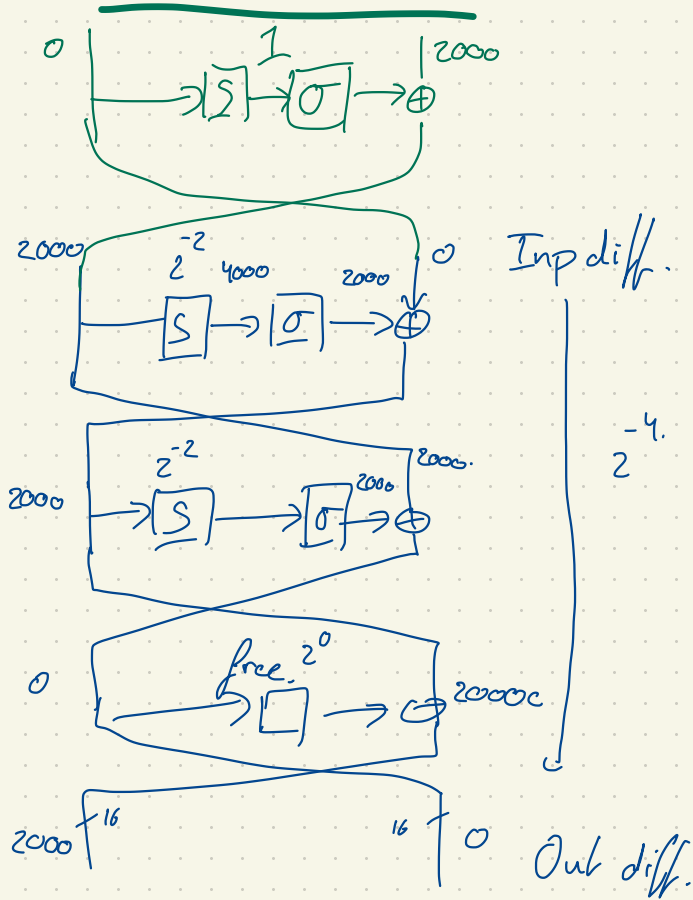 0
1
2000
S
σ
⊕
2000
2^-2
4000
2000
0
Inp diff.
S
σ
⊕
2^-4.
2^-2
2000.
2000
2000
S
σ
⊕
free.
2^0
0
2000
16
16
2000
0
Out diff.